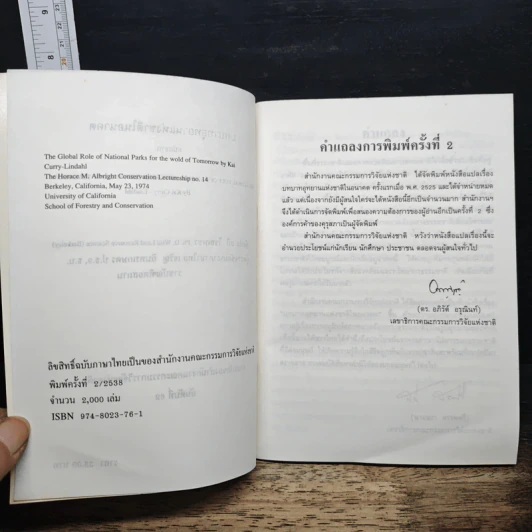 The Global Role of National Parks for the wold of Tomorrow by Kai
Curry-Lindahl
The Horace M. Albright Conservation Lectureship no. 14
Berkeley, California, May 23, 1974
University of California
School of Forestry and Conservation
ลิขสิทธิ์ฉบับภาษาไทยเป็นของสำนักงานคณะกรรมการวิจัยแห่งชาติ
พิมพ์ครั้งที่ 2/2538
จำนวน 2,000 เล่ม
ISBN 974-8023-76-1
คำแถลงการพิมพ์ครั้งที่ 2
สำนักงานคณะกรรมการวิจัยแห่งชาติ ได้จัดพิมพ์หนังสือแปลเรื่อง
บทบาทอุทยานแห่งชาติในอนาคต ครั้งแรกเมื่อ พ.ศ. 2525 และได้จำหน่ายหมด
แล้ว แต่เนื่องจากยังมีผู้สนใจใคร่จะได้หนังสือนี้อีกเป็นจำนวนมาก สำนักงานฯ
จึงได้ดำเนินการจัดพิมพ์เพื่อสนองความต้องการของผู้อ่านอีกเป็นครั้งที่ 2 ซึ่ง
องค์การค้าของคุรุสภาเป็นผู้จัดพิมพ์
สำนักงานคณะกรรมการวิจัยแห่งชาติ หวังว่าหนังสือแปลเรื่องนี้จะ
อำนวยประโยชน์แก่นักเรียน นักศึกษา ประชาชน ตลอดจนผู้สนใจทั่วไป
(ดร. อภิรัต อรุณินท์)
เลขาธิการคณะกรรมการวิจัยแห่งชาติ